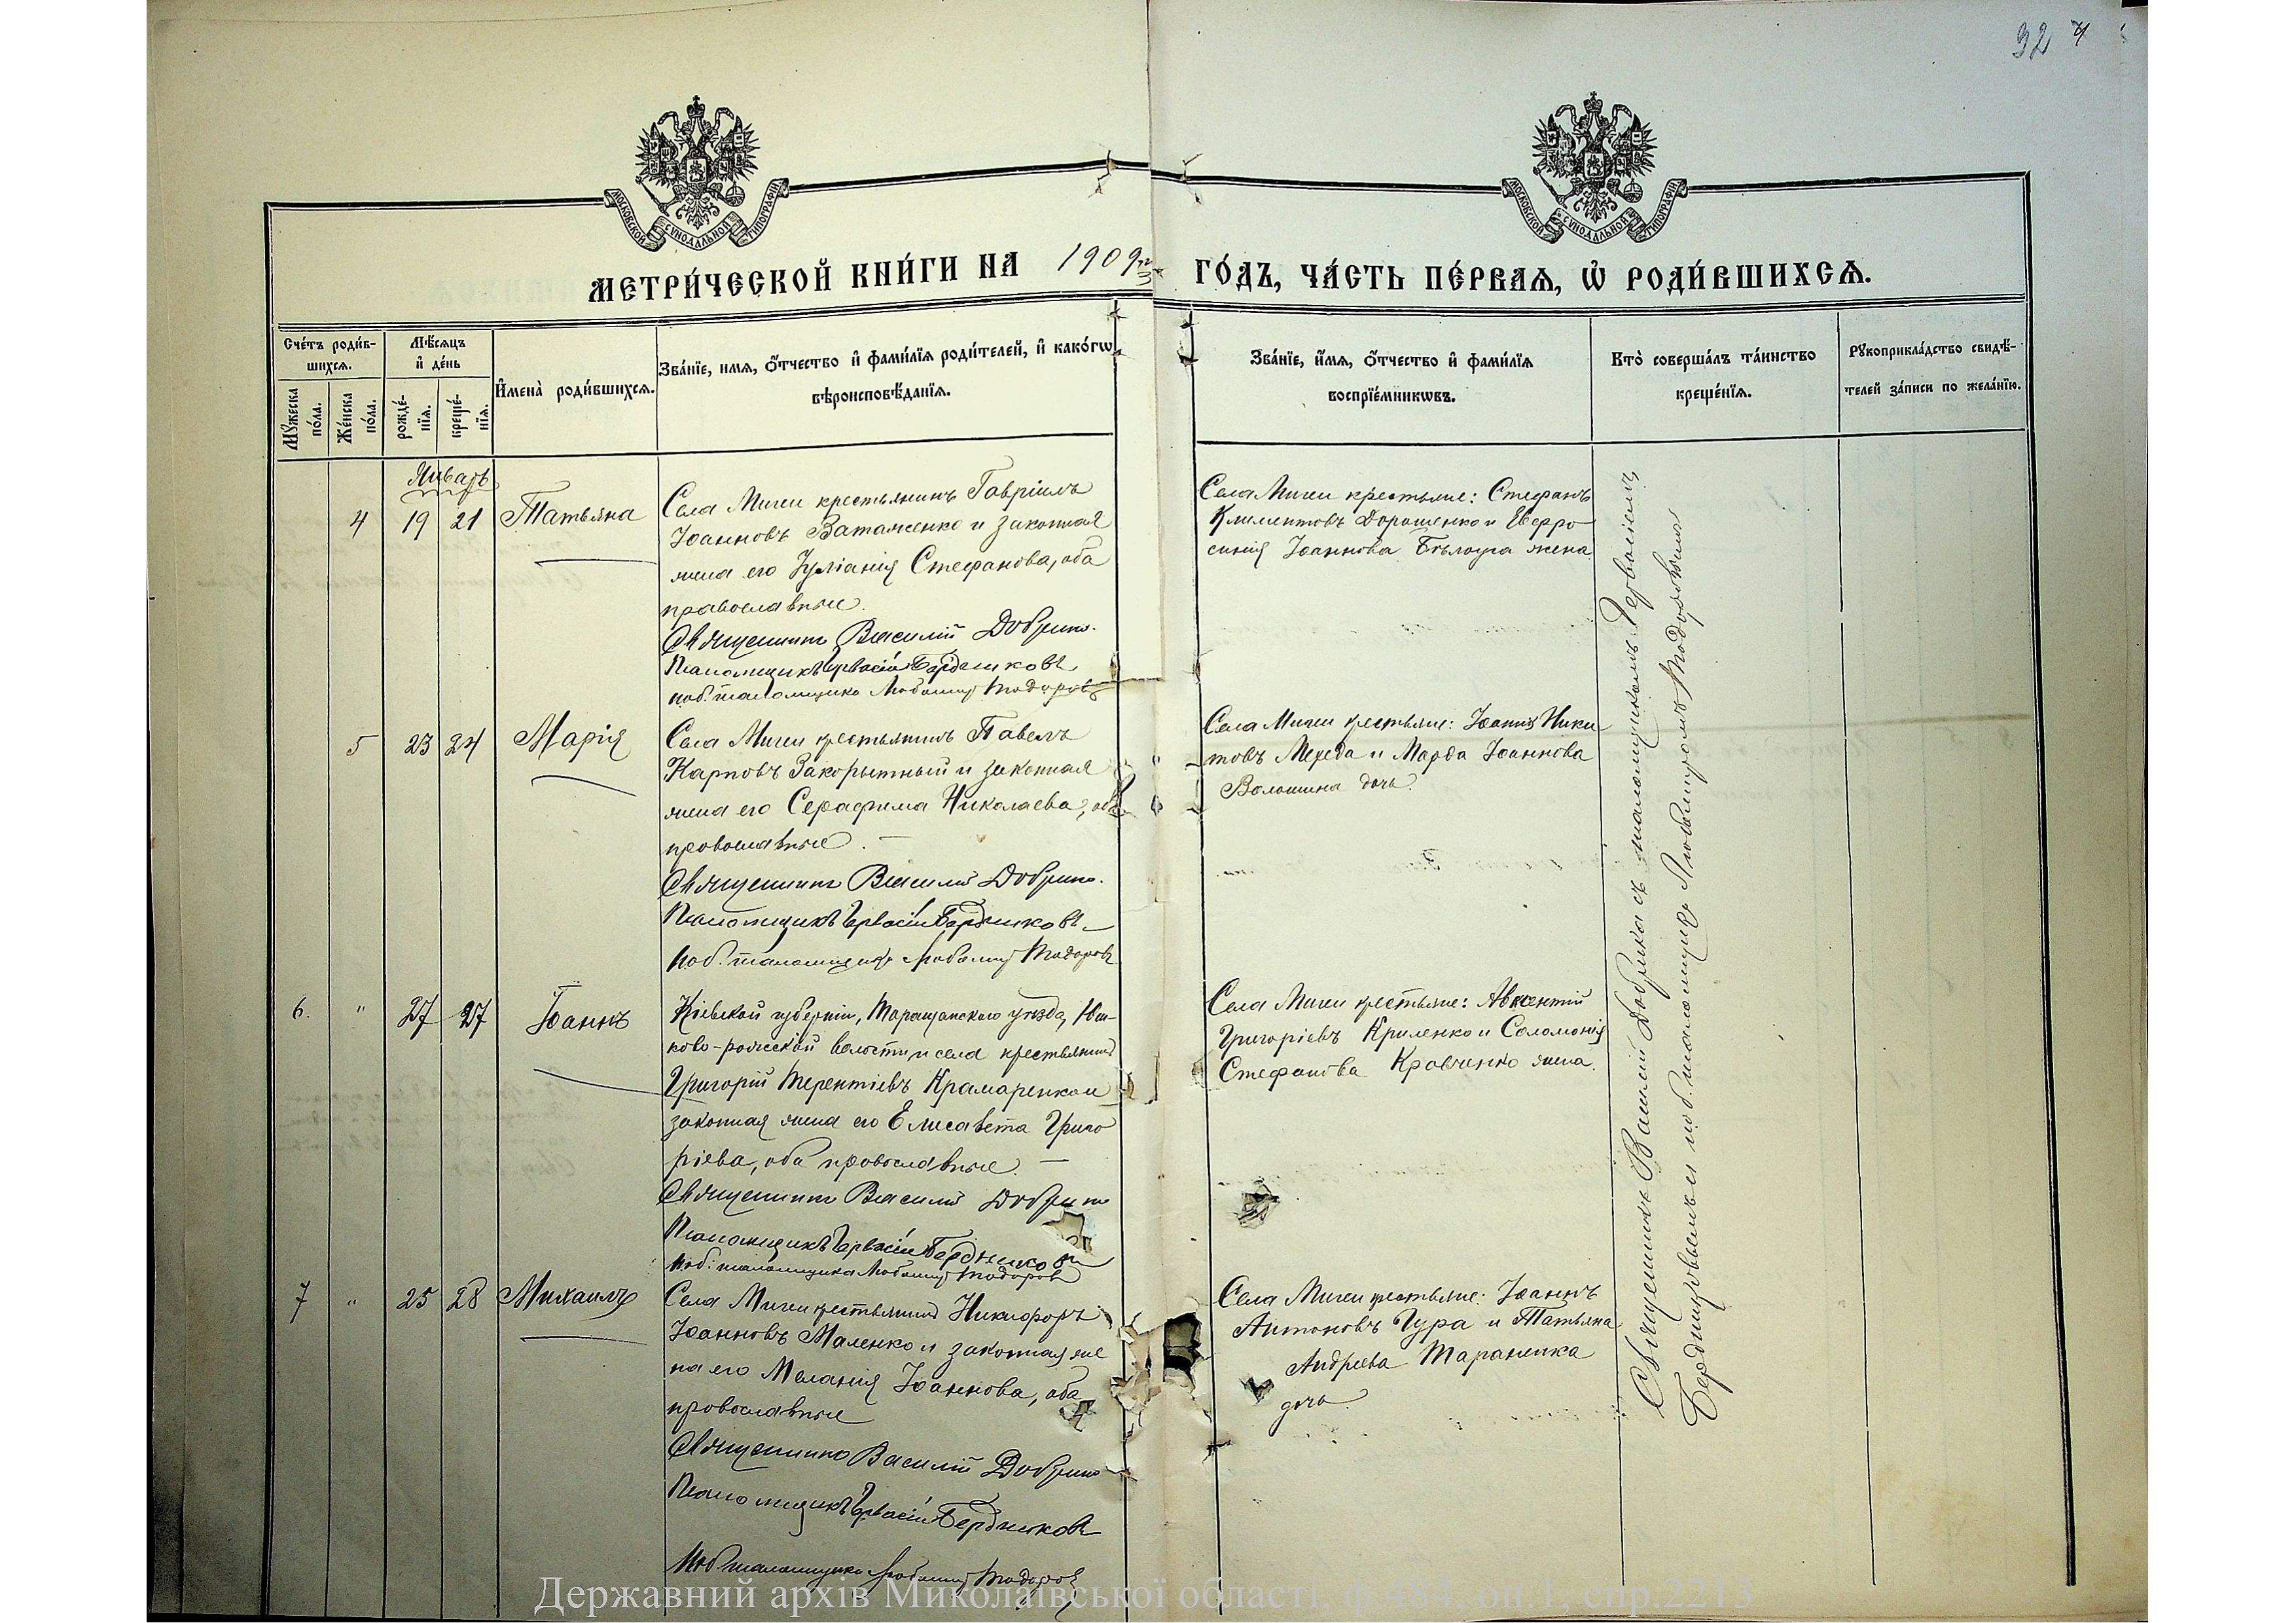 32 4
МОСКОВСКОЙ СѴНОДАЛЬНОЙ ТИПОГРАФІИ
МОСКОВСКОЙ СѴНОДАЛЬНОЙ ТИПОГРАФІИ
МЕТРИ́ЧЕСКОЙ КНИ́ГИ НА 1909 ГО́ДЪ, ЧА́СТЬ ПЕ́РВАѦ, Ѡ҆ РОДИ́ВШИХСѦ.
Сче́тъ роди́в-
шихсѧ.
Мꙋ́жеска по́ла.
Же́нска по́ла.
Мѣ́сѧцъ и҆ де́нь
рожде́-нїѧ.
креще́-нїѧ.
И҆мена̀ роди́вшихсѧ.
Зва́нїе, имѧ, ѻ҆́тчество и҆ фами́лїѧ роди́телей, и҆ како́гѡ
вѣроисповѣ́данїѧ.
Зва́нїе, и҆́мѧ, ѻ҆́тчество и҆ фами́лїѧ
воспрїе́мникѡвъ.
Кто̀ соверша́лъ та́инство
креще́нїѧ.
Рꙋкоприкла́дство свидѣ́-
телей за́писи по жела́нїю.
Январь
4 19 21 Татьяна
Села Мигеи крестьянинъ Гавріилъ
Іоанновъ Ватаженко и законная
жена его Іуліанія Стефанова, оба
православные.
Священникъ Василій Добрика.
Псаломщикъ Гервасій Бердниковъ
и об. псаломщика Любомиръ Тодоровъ
Села Мигеи крестьяне: Стефанъ
Климентовъ Дорошенко и Евфро-
синія Іоаннова Бѣлоуса жена
5 23 24 Марія
Села Мигеи крестьянинъ Павелъ
Карповъ Закорытный и законная
жена его Серафима Николаева, оба
православные.
Священникъ Василій Добрика.
Псаломщикъ Гервасій Бердниковъ
и об. псаломщика Любомиръ Тодоровъ
Села Мигеи крестьяне: Іоаннъ Ники
товъ Мереда и Марфа Іоаннова
Волошина дочь.
6. " 27 27 Іоаннъ
Кіевской губерніи, Таращанского уѣзда,
волости и села крестьянинъ
Григорій Терентіевъ Крамаренко и
законная жена его Елисавета Григо
ріева, оба православные. —
Священникъ Василій Добрика
Псаломщикъ Гервасій Бердниковъ
и об. псаломщика Любомиръ Тодоровъ
Села Мигеи крестьяне: Авксентій
Григоріевъ Криленко и Соломонія
Стефанова Кравченко жена.
7 " 25 28 Михаилъ
Села Мигеи крестьянинъ Никифоръ
Іоанновъ Маленко и законная же
на его Меланія Іоаннова, оба
православные
Священникъ Василій Добрика
Псаломщикъ Гервасій Бердниковъ
и об. псаломщика Любомиръ Тодоровъ
Села Мигеи крестьяне: Іоаннъ
Антоновъ Гура и Татьяна
Андреева Тараненка
дочь.
Священникъ Василій Добрика съ псаломщикомъ Гервасіемъ
Бердниковымъ и и об. псаломщика Любомиромъ Тодоровымъ
Державний архів Миколаївської області. ф.484, оп.1, спр.2213